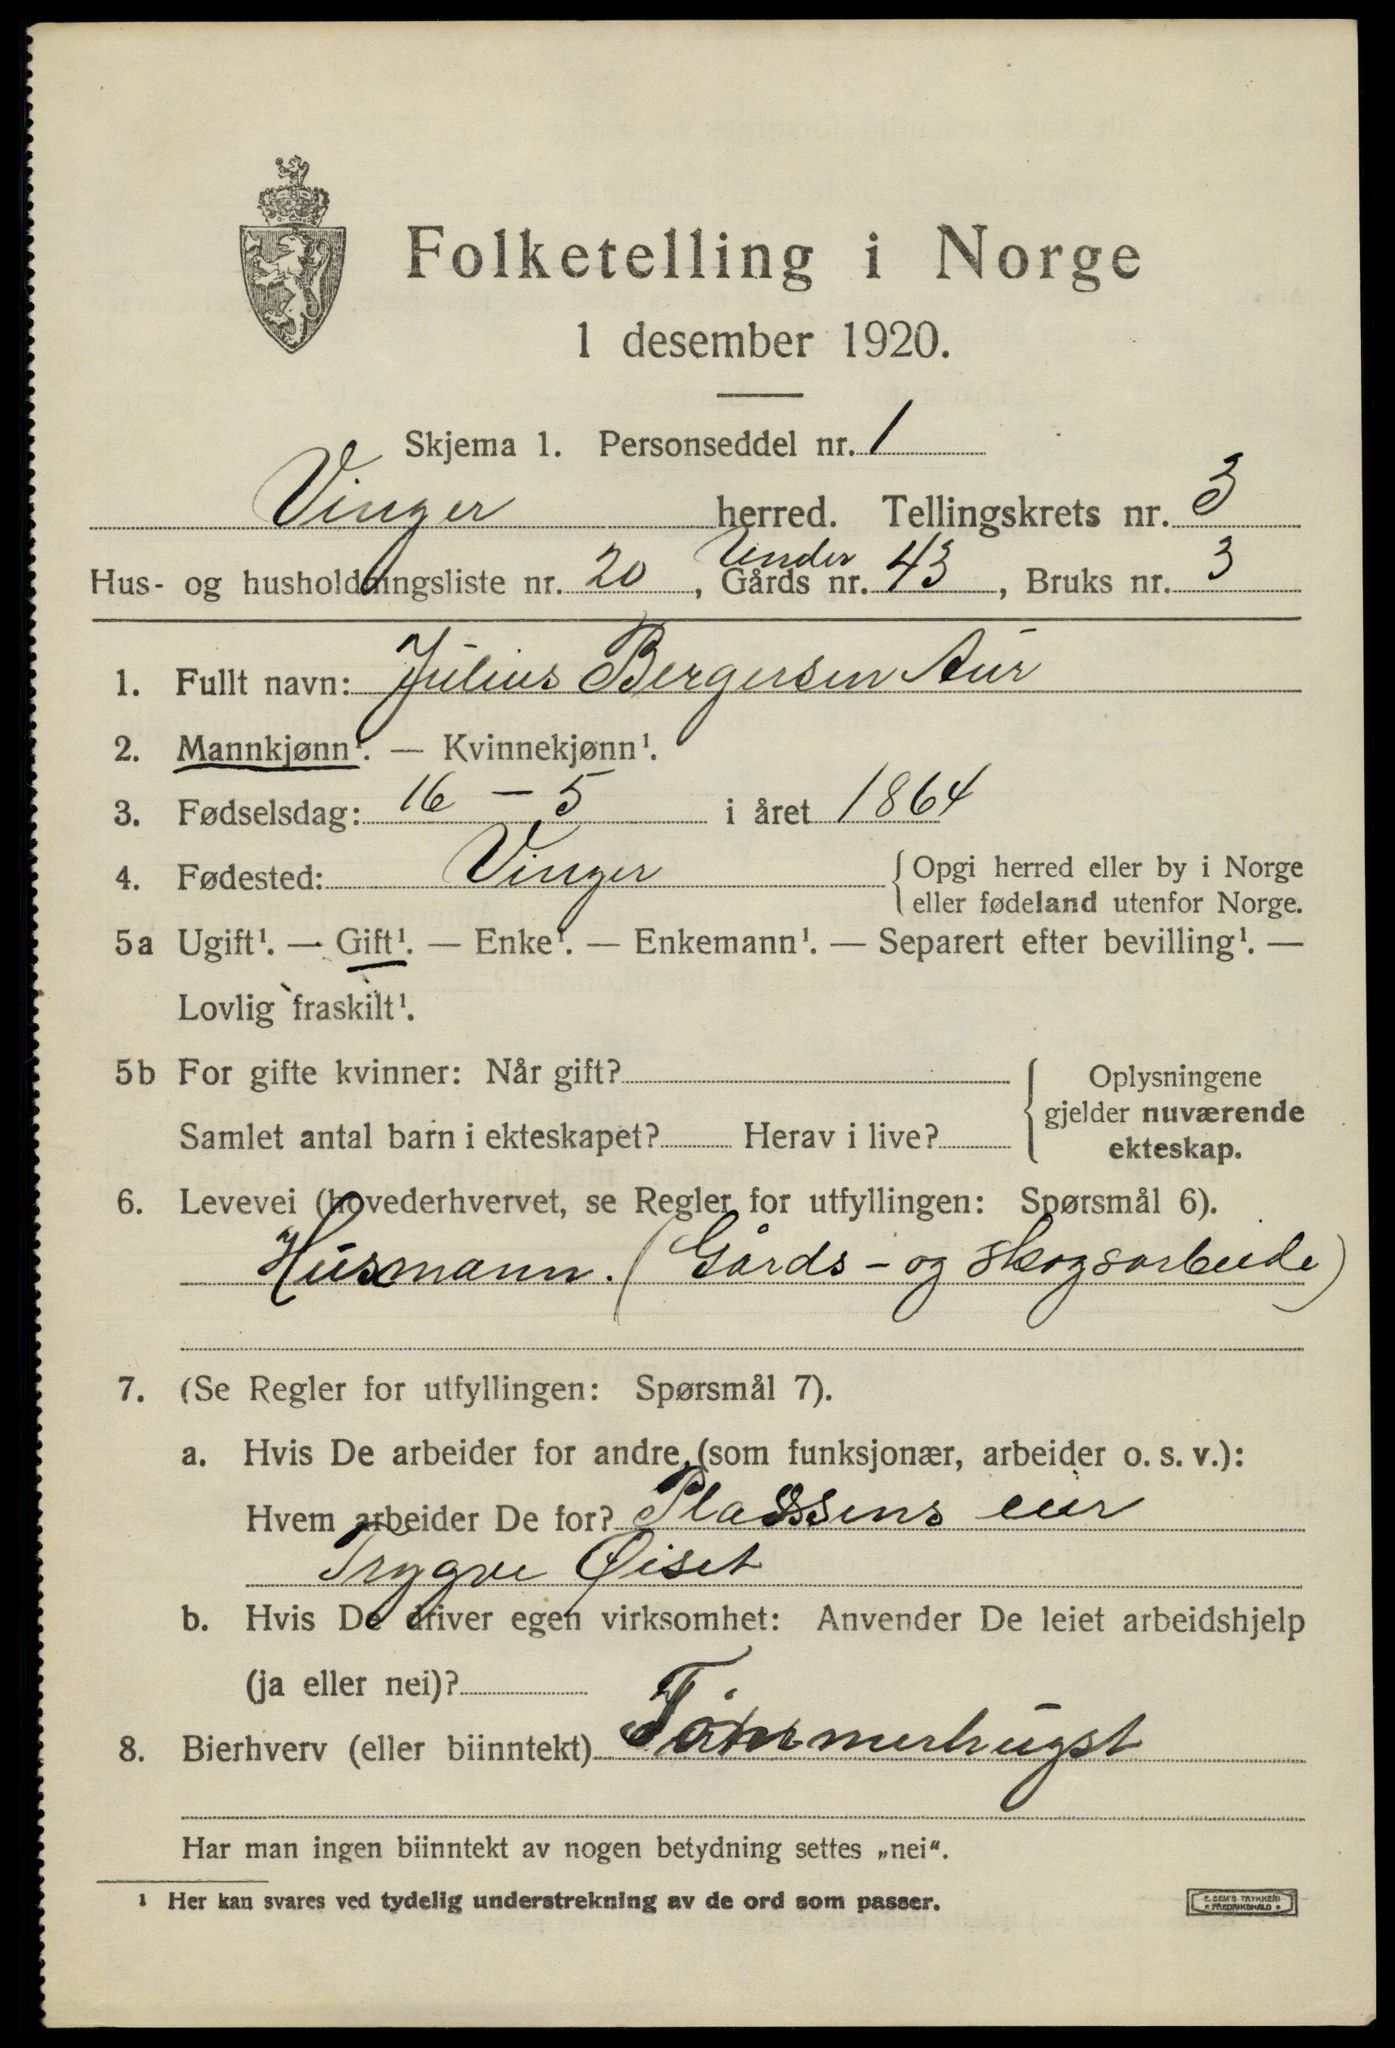 Folketelling i Norge
1 desember 1920.
Skjema 1. Personseddel nr. 1
Vinger herred. Tellingskrets nr. 3
Under
Hus- og husholdningsliste nr. 20, Gårds nr. 43, Bruks nr. 3
1. Fullt navn: Julius Bergersen Aur
2. Mannkjønn¹. — Kvinnekjønn¹.
3. Fødselsdag: 16 – 5 i året 1864
4. Fødested: Vinger { Opgi herred eller by i Norge
eller fødeland utenfor Norge.
5a Ugift¹. — Gift¹. — Enke¹. — Enkemann¹. — Separert efter bevilling¹. —
Lovlig fraskilt¹.
5b For gifte kvinner: Når gift?
Samlet antal barn i ekteskapet? Herav i live?
{ Oplysningene
gjelder nuværende
ekteskap.
6. Levevei (hovederhvervet, se Regler for utfyllingen: Spørsmål 6).
Husmann. (Gårds- og skogsarbeide)
7. (Se Regler for utfyllingen: Spørsmål 7).
a. Hvis De arbeider for andre (som funksjonær, arbeider o. s. v.):
Hvem arbeider De for? Plassens eier
Trygve Øiset
b. Hvis De driver egen virksomhet: Anvender De leiet arbeidshjelp
(ja eller nei)?
8. Bierhverv (eller biinntekt) Tømmerhugst
Har man ingen biinntekt av nogen betydning settes „nei“.
¹ Her kan svares ved tydelig understrekning av de ord som passer.
E. SEM'S TRYKKERI
FREDRIKSHALD